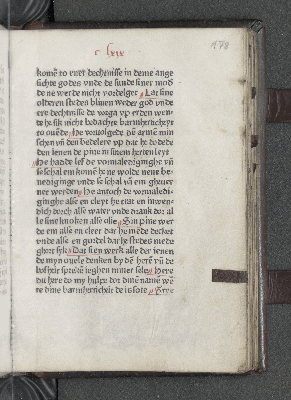 c lxix
178
kome to ewer dechenisse in deme ange
sichte godes vnde de sunde siner mod
der ne werde nicht vordelget Lat sine
olderen stedes bliuen weder god vnde
ere dechtnisse de vorga vp erden wen
te he sik nicht bedachte barmherticheyt
to ouende He voruolgede den armen min
schen vnde den bedeler vp dat he to dede
den ienen de pine in sinem herten leyt
He hadde lef de vormaledigighe vnde
se schal em kome he ne wolde neue be
nediginge vnde se schal van em gheuer
net werden He antoch de vormaledi
ginghe alse en cleyt he trat en inwen
dich dorch alse water vnde drank dor al
le sine knoken alse olie Sin pine wer
de em alse en cleet dar he mede decket
vnde alse en gordel dar he stedes mede
ghort sy Dat is en werk alle der ienen
de my ouele denken by deme heren vnde de
bosheit spreken ieghen miner sele Here
du here do my hulpe dor dines namen we
re dine barmherticheit de is sote Vrye